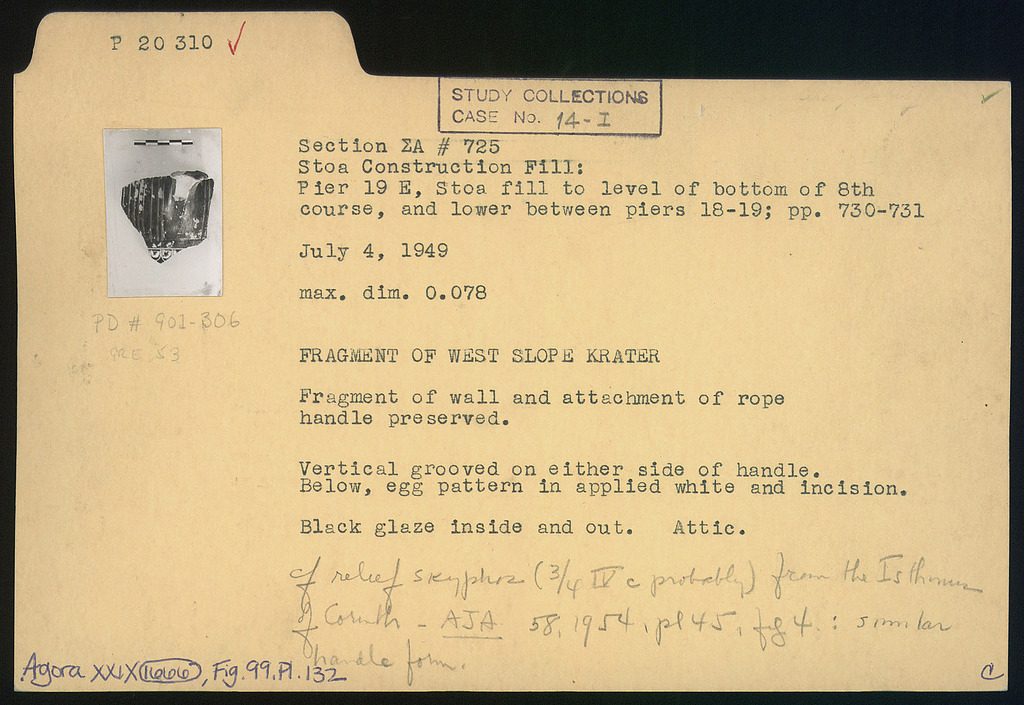 P 20 310 ✓
STUDY COLLECTIONS
CASE No. 14-I
Section ΣA # 725
Stoa Construction Fill:
Pier 19 E, Stoa fill to level of bottom of 8th
course, and lower between piers 18-19; pp. 730-731
July 4, 1949
max. dim. 0.078
PD # 901-306
GRE 53
FRAGMENT OF WEST SLOPE KRATER
Fragment of wall and attachment of rope
handle preserved.
Vertical grooved on either side of handle.
Below, egg pattern in applied white and incision.
Black glaze inside and out. Attic.
cf relief skyphos (3/4 IV c probably) from the Isthmus
of Corinth - AJA 58, 1954, pl 45, fig 4. : similar
handle form.
Agora XXIX 1666, Fig. 99. Pl. 132
C